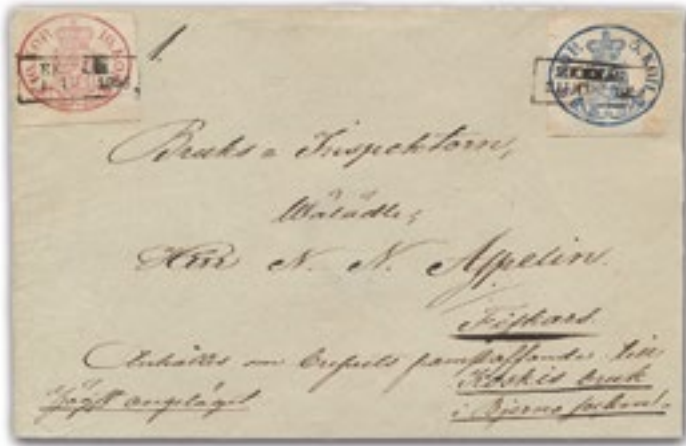 10. KOP. 10. KOP.
5. KOP.
1.
Bruks Inspektorn,
Wälädle,
Herr N. N. Apelin.
Fiskars
Anhålles om framskaffande till
Koskis bruk
i Bjerno socken.
Högst angeläget